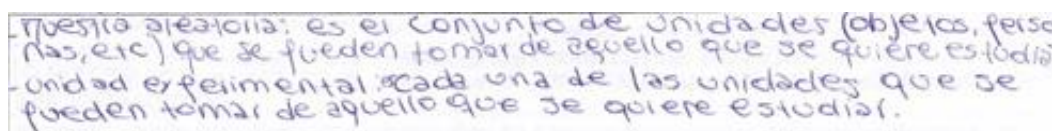 -muestra aleatoria: es el conjunto de unidades (objetos, perso
nas, etc) que se pueden tomar de aquello que se quiere estudia
-unidad experimental: cada una de las unidades que se
pueden tomar de aquello que se quiere estudiar.